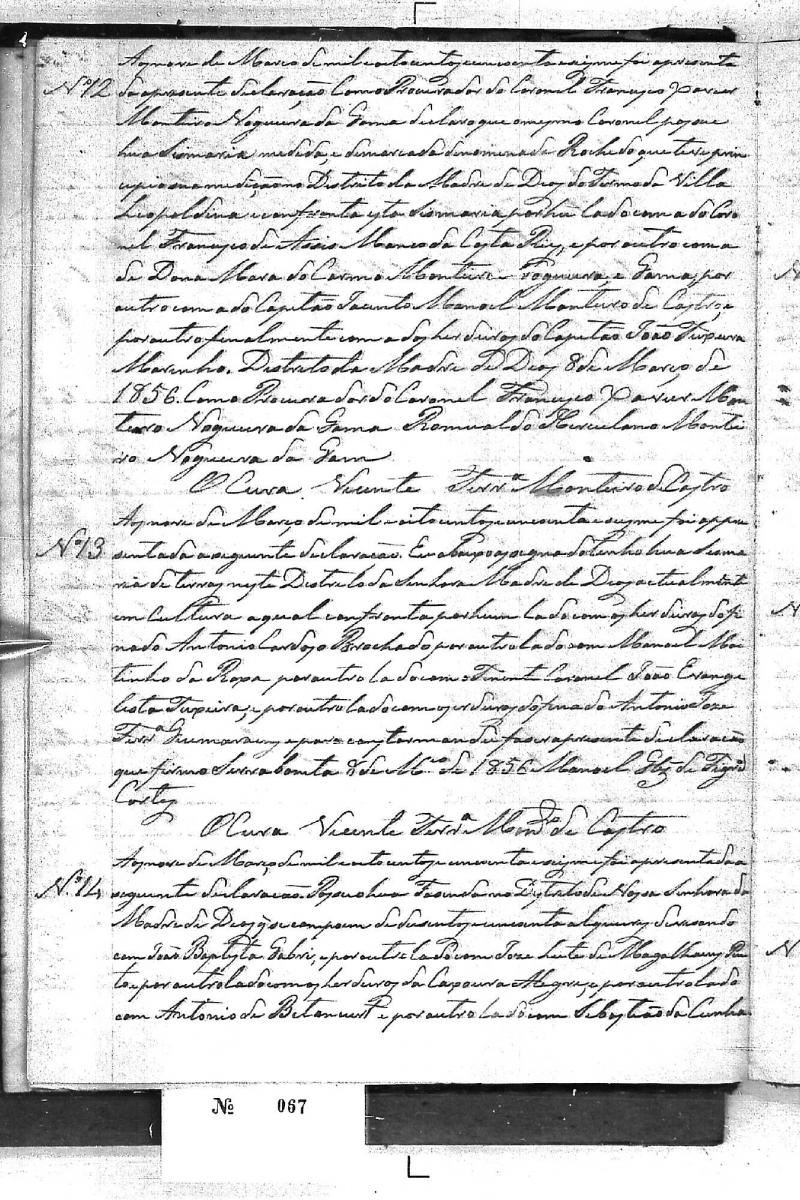 Aos nove de Março de mil e oito centos e cincoenta e seis me foi apresenta
Nº12 da apresente declaração. Como Procurador do Coronel Francisco Xavier
Monteiro Nogueira da Gama declaro que o mesmo Coronel possue
hua Sismaria medida, e demarcada denominada Rochedo, que teve prin
cipio sua medição no Districto da Madre de Deos do Termo da Villa
Leopoldina e confronta esta Sismaria por hu lado com a do Coro
nel Francisco de Assis Manco da Costa Reis, e por outro com a
de Dona Mara do Carmo Monteiro Nogueira e Gama, por
outro com a do Capitão Jacinto Manoel Monteiro de Castro, e
por outro finalmente com a dos herdeiros do Capitão João Teixeira
Marinho. Destrito da Madre De Deos 8 de Março de
1856. Como Procurador do Coronel Francisco Xavier Mon
teiro Nogueira da Gama Romualdo Herculano Montei
ro Nogueira da Gam
O Cura Vicente Ferrª Monteiro de Castro
Aos nove de Março de mil e oito centos e cincoenta e seis me foi appre
Nº13 sentada a seguente declaração. Eu abaixo assignado tenho hua Sesma
ria de terras neste Destrito da Senhora Madre de Deos actualmente
em Cultura a qual confronta por hum lado com os herdeiros do fi
nado Antonio Cardoso Brochado por outro lado com Manoel Moi
tinho da Rosa por outro lado com o Tenent Coronel João Evange
lista Teixeira, e por outro lado com os erdeiros do finado Antonio Joze
Ferrª Guimaraens, e para constar mandei faser a presente declaração
que firmo Serra bonita 8 de Mço de 1856 Manoel de Figrdo
Cortes
O Cura Vicente Ferrª Montrº de Castro
Aos nove de Março de mil e oito centos e cincoenta e seis me foi apresentada a
Nº14 seguente declaração. Possuo hua Fasenda no Destrito de Nossa Senhora da
Madre de Deos q se compoem de dusentos e cincoenta alqueires devisando
com João Baptista e por outro lado com Joze Leite de Magalhaens Pin
to e por outro lado com os herdeiros da Capoeira Alegre, e por outro lado
com Antonio de Betancurt e por outro lado com Sebastião da Cunha
Nº 067